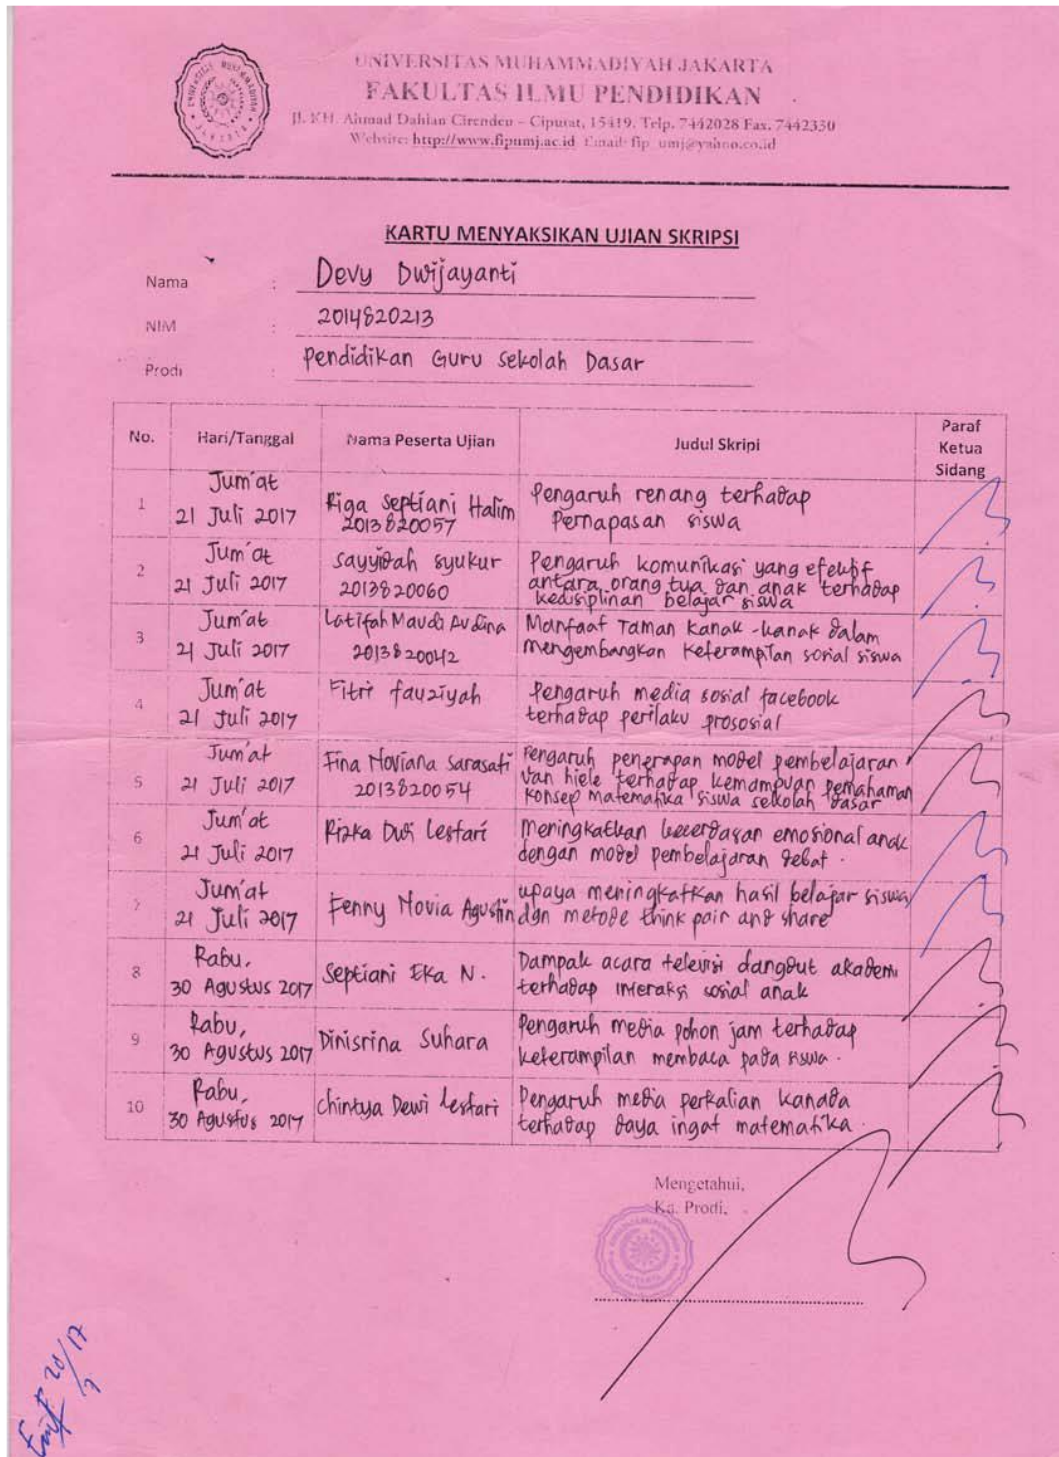 UNIVERSITAS MUHAMMADIYAH JAKARTA
FAKULTAS ILMU PENDIDIKAN
Jl. KH. Ahmad Dahlan Cirendeu – Ciputat, 15419, Telp. 7442028 Fax. 7442330
Website: http://www.fipumj.ac.id Email: fip_umj@yahoo.co.id
KARTU MENYAKSIKAN UJIAN SKRIPSI
Nama : Devy Dwijayanti
NIM : 2014820213
Prodi : Pendidikan Guru Sekolah Dasar
No. Hari/Tanggal Nama Peserta Ujian Judul Skripi Paraf Ketua Sidang
1 Jum'at 21 Juli 2017 Riga Septiani Halim 2013820057 Pengaruh renang terhadap Pernapasan siswa
2 Jum'at 21 Juli 2017 Sayyidah Syukur 2013820060 Pengaruh komunikasi yang efektif antara orang tua dan anak terhadap kedisiplinan belajar siswa
3 Jum'at 21 Juli 2017 Latifah Maudi Avdina 2013820042 Manfaat Taman Kanak-kanak dalam mengembangkan keterampilan sosial siswa
4 Jum'at 21 Juli 2017 Fitri fauziyah Pengaruh media sosial facebook terhadap perilaku prososial
5 Jum'at 21 Juli 2017 Fina Noviana Sarasati 2013820054 Pengaruh penerapan model pembelajaran Van hiele terhadap kemampuan pemahaman konsep matematika siswa sekolah dasar
6 Jum'at 21 Juli 2017 Rizka Dwi Lestari Meningkatkan kecerdasan emosional anak dengan model pembelajaran debat.
7 Jum'at 21 Juli 2017 Fenny Novia Agustin upaya meningkatkan hasil belajar siswa dgn metode think pair and share
8 Rabu, 30 Agustus 2017 Septiani Eka N. Dampak acara televisi dangdut akademi terhadap interaksi sosial anak
9 Rabu, 30 Agustus 2017 Dinisrina Suhara Pengaruh media pohon jam terhadap keterampilan membaca pada siswa.
10 Rabu, 30 Agustus 2017 Chintya Dewi Lestari Pengaruh media perkalian kanada terhadap daya ingat matematika.
Mengetahui,
Ka. Prodi,